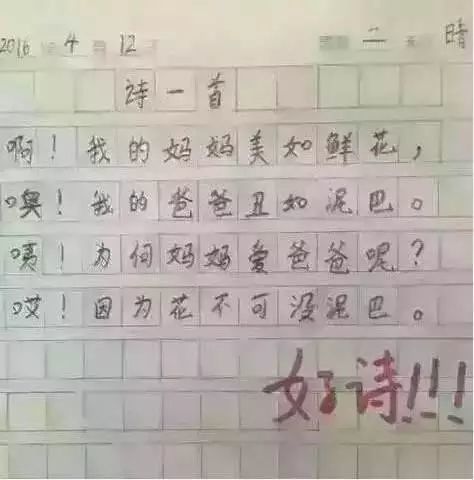 2016 4 12 二 晴
诗一首
啊！我的妈妈美如鲜花，
噢！我的爸爸丑如泥巴。
咦！为何妈妈爱爸爸呢？
哎！因为花不可没泥巴。
好诗!!!